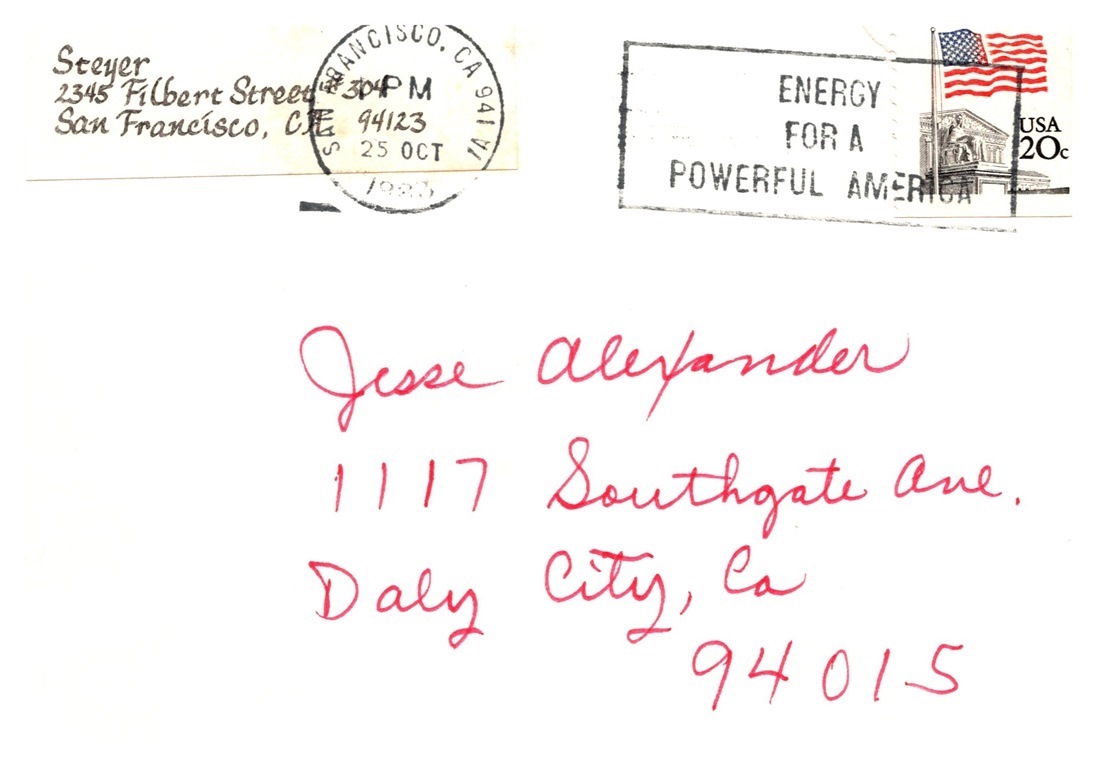 Steyer
2345 Filbert Street #304
San Francisco, CA 94123
SAN FRANCISCO, CA 941
PM
25 OCT
ENERGY
FOR A
POWERFUL AMERICA
USA
20c
Jesse Alexander
1117 Southgate Ave.
Daly City, Ca
94015